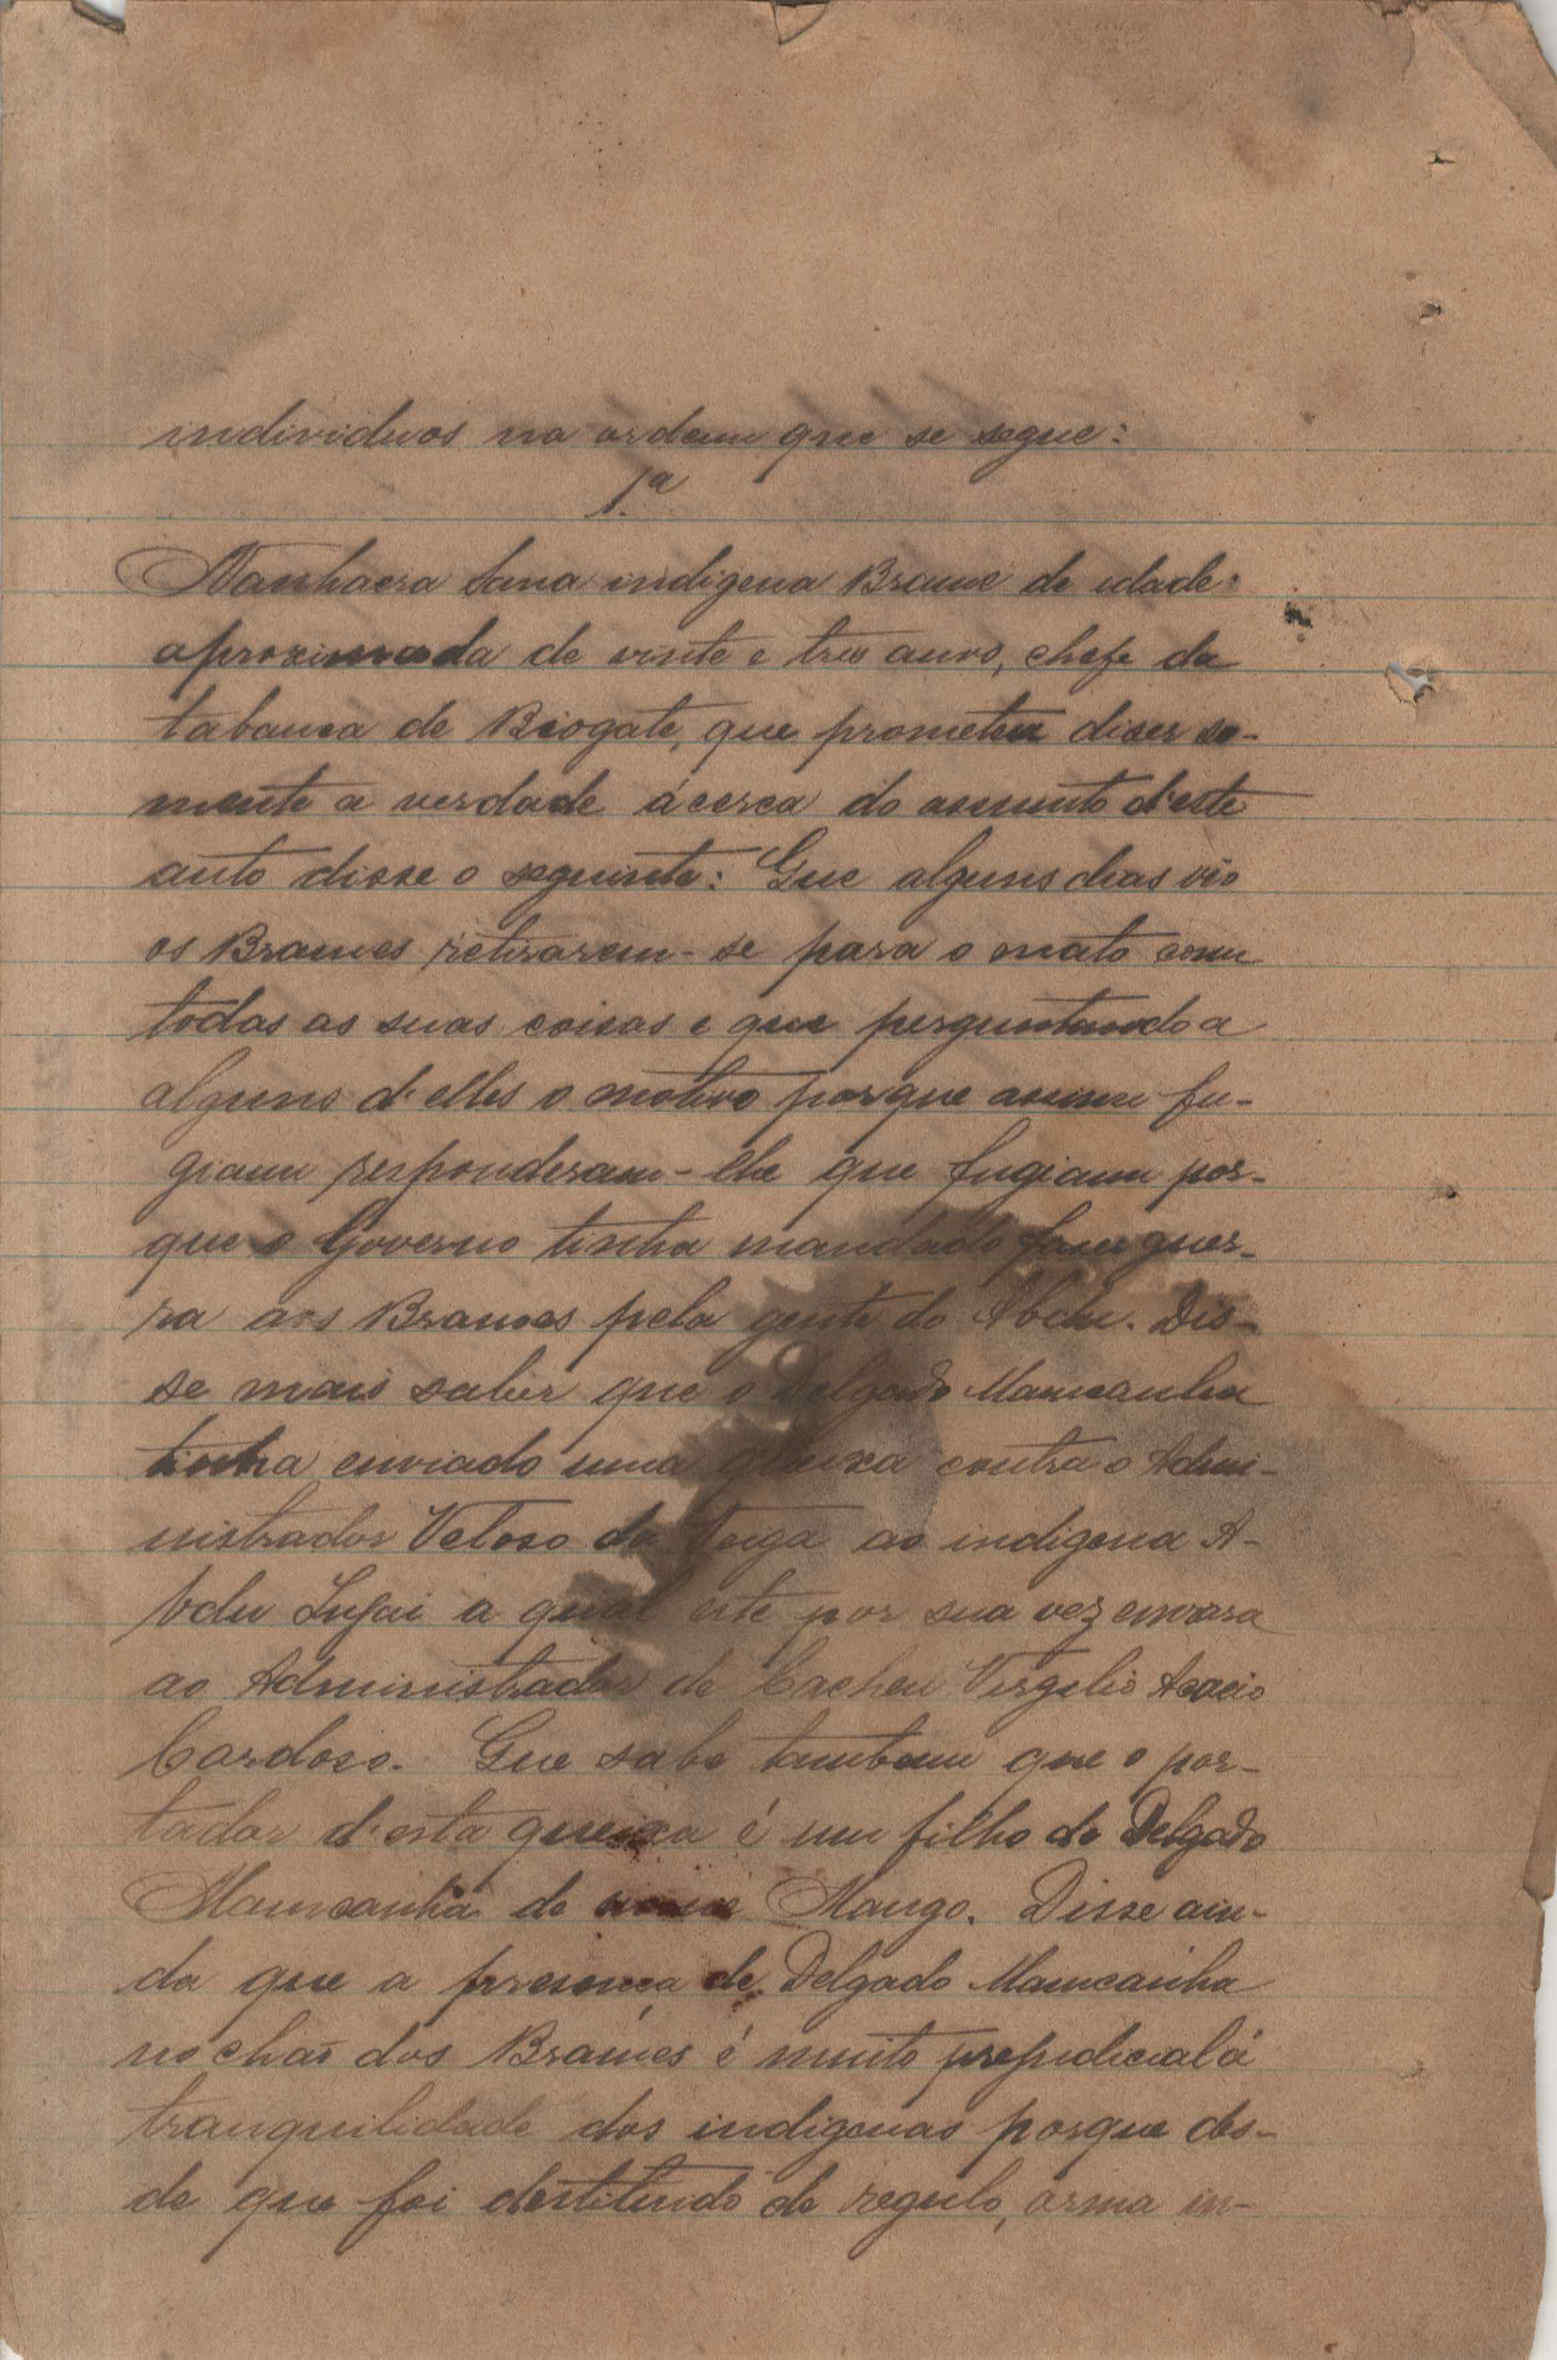 individuos na ordem que se segue:
1.ª
Nanhaera Sana indigena Brame de idade
aproximada de vinte e tres annos, chefe da
tabanca de Biogate, que prometeu dizer so-
mente a verdade ácerca do assunto d'este
auto disse o seguinte: Que alguns dias vio
os Brames retirarem-se para o mato com
todas as suas coisas e que perguntando a
alguns d'elles o motivo porque assim fu-
giam responderam-lhe que fugiam por-
que o Governo tinha mandado fazer guer-
ra aos Brames pela gente do Abdu. Dis-
se mais saber que o Delgado Mancanha
tinha enviado uma queixa contra o Admi-
nistrador Veloso da Veiga ao indigena A-
bdu Injai a qual este por sua vez enviara
ao Administrador de Cacheu Virgilio Acacio
Cardoso. Que sabe tambem que o por-
tador d'esta queixa é um filho do Delgado
Mamcanha de nome Mango. Disse ain-
da que a presença de Delgado Mamcanha
no chão dos Brames é muito prejudicial á
tranquilidade dos indigenas porque des-
de que foi destituido de regulo, arma in-